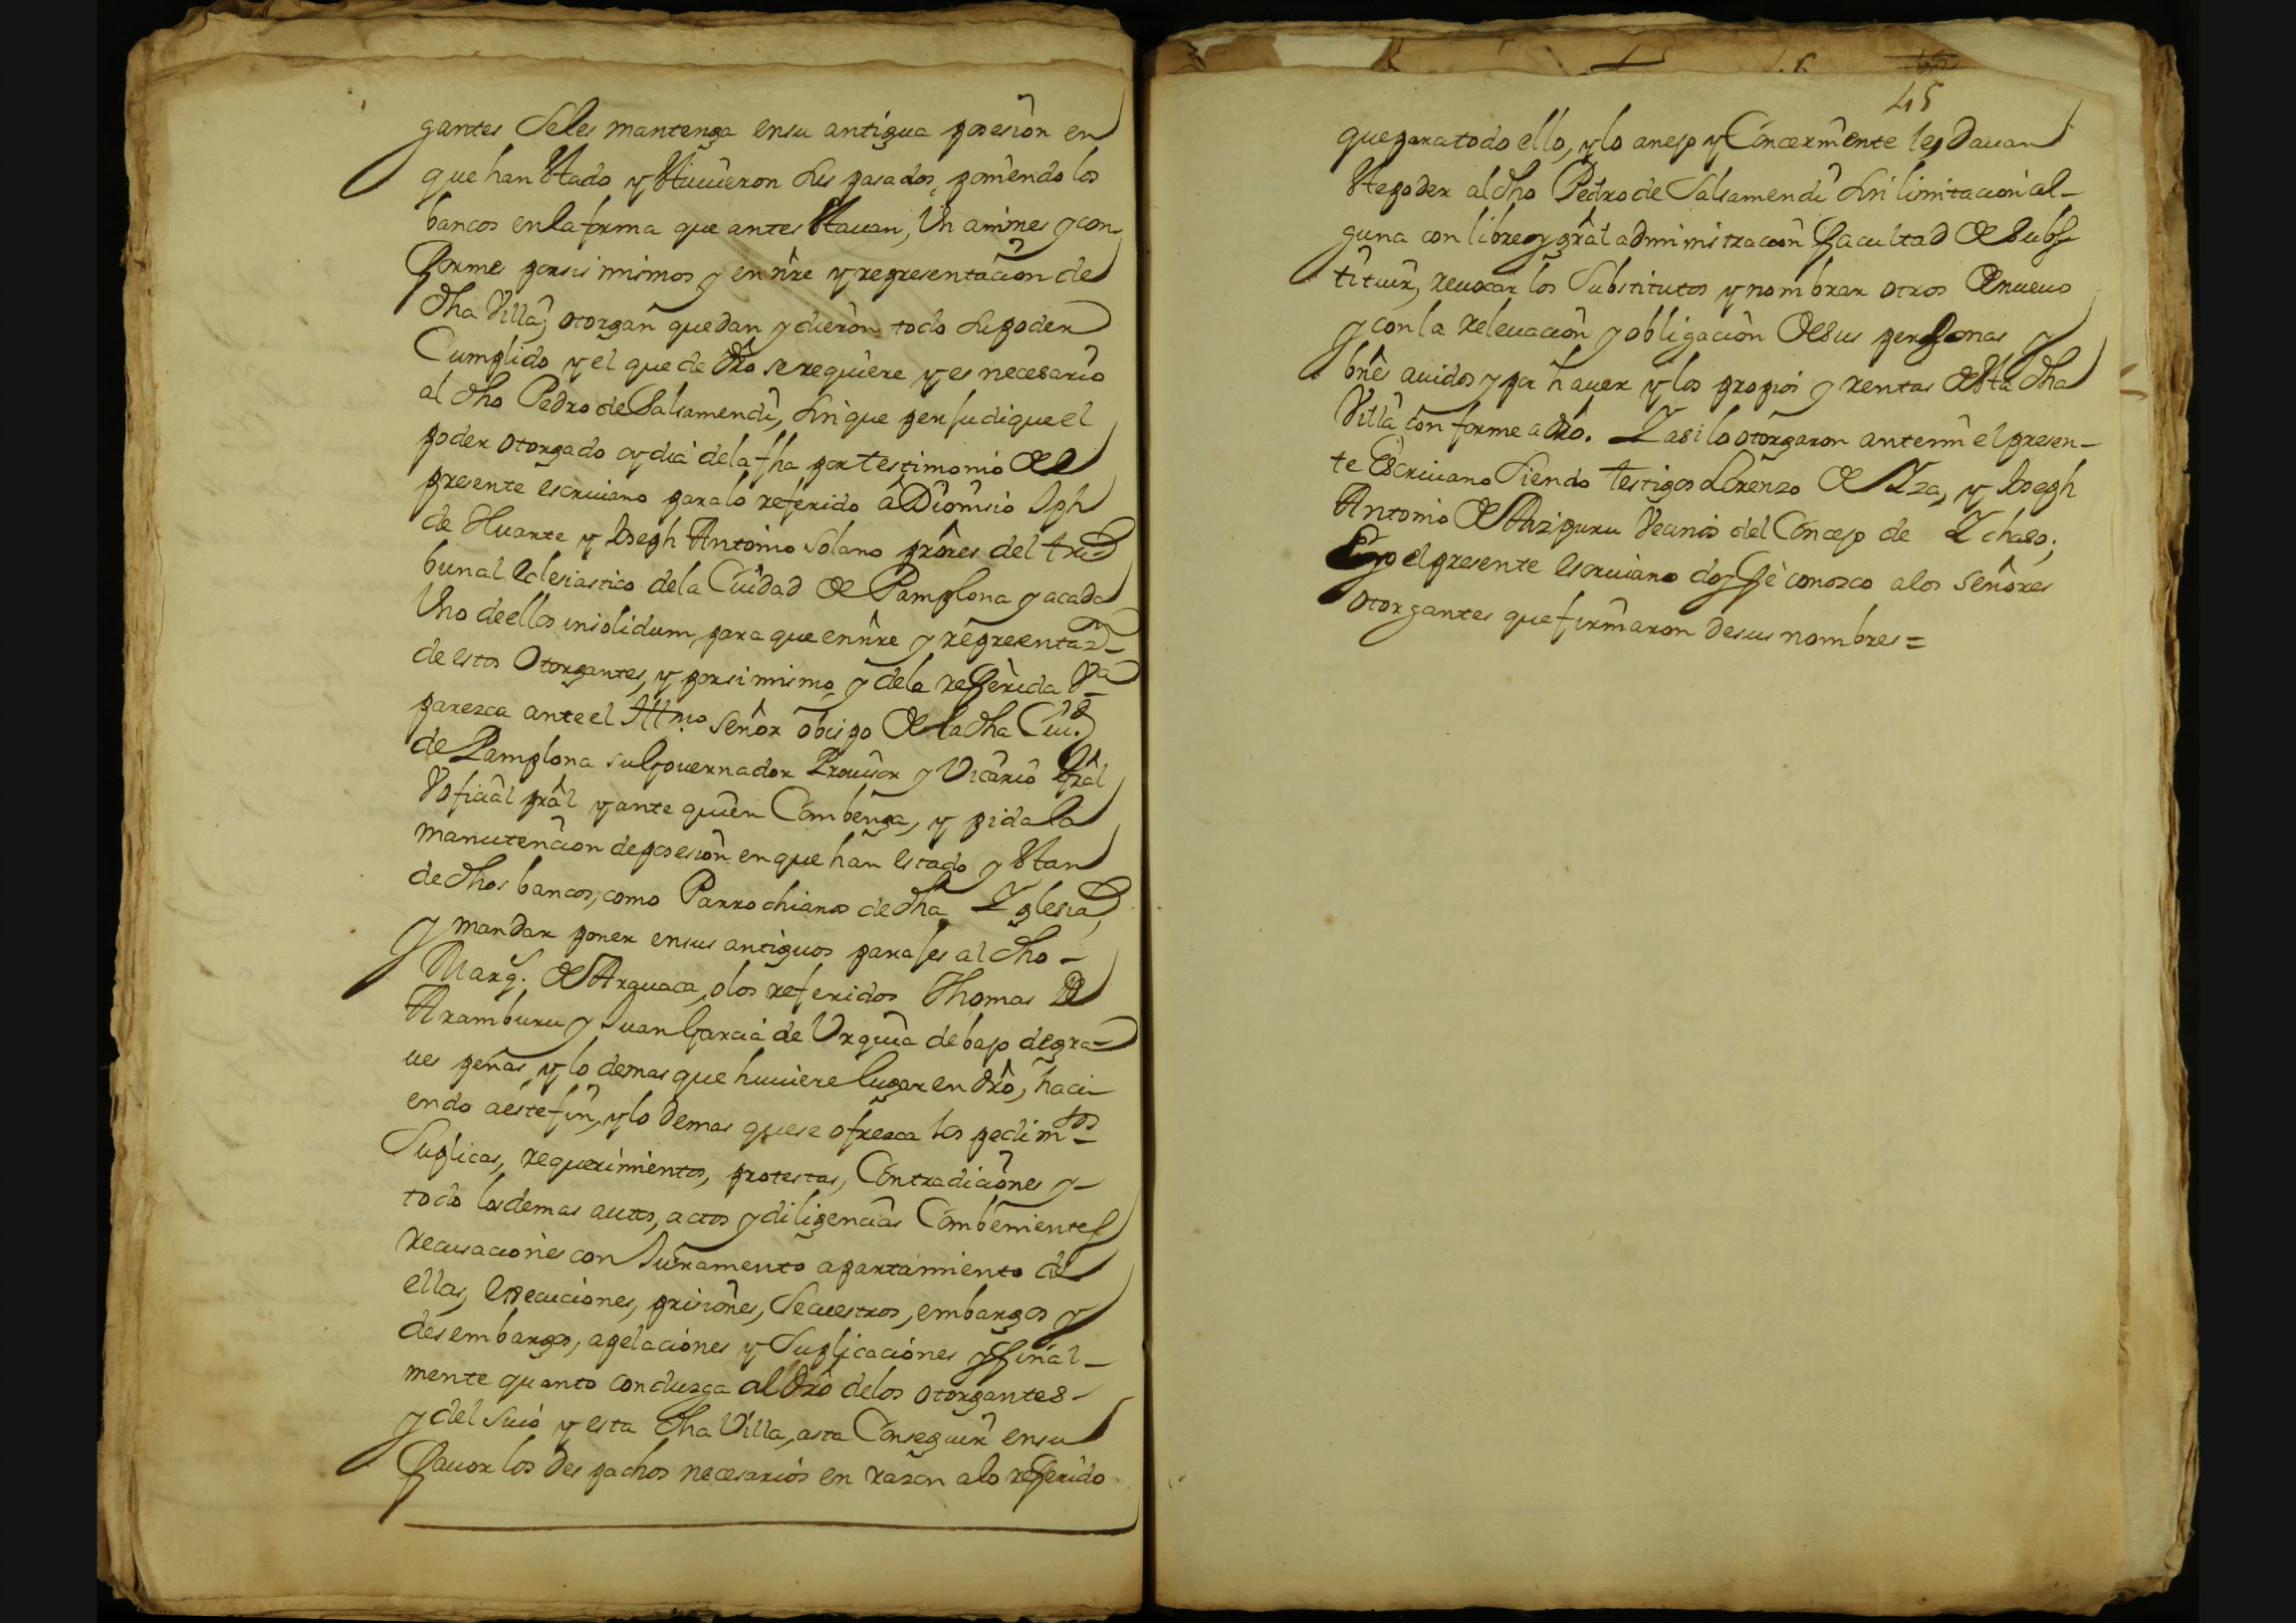 gantes seles mantenga ensu antigua posesion en
que han estado y estuuieron sus pasados, poniendo los
bancos enla forma que antes estauan, Un animes y con
formes porsi mismos y en nre y representacion de
dha Villa, otorgan quedan y dieron todo supoder
Cumplido y el que de dro se requiere y es necesario
al dho Pedro de Salsamendi, sin que perjudique el
poder otorgado oy dia dela fha por testimonio del
presente escriuano paralo referido a Dionisio Jph
de Huarte y Joseph Antonio Solano prores del tri
bunal eclesiastico dela Ciudad de Pamplona y acada
Uno deellos insolidum, para que en nre y representaz.on
de estos Otorgantes, y porsi mismo y dela referida Va
parezca ante el Illmo Señor obispo de la dha Ciud.
de Pamplona su Gouernador Prouisor y Vicario Gral
V oficial pral y ante quien Combenga, y pida la
manutencion deposesion enque han estado y estan
dedhos bancos, como Parrochianos dedha Yglesia,
y mandar poner ensus antiguos parajes al dho -
Marq.s de Arguaca, olos referidos Thomas de
Aramburu y Juan Garcia de Urquia debajo degra-
ues penas, y lo demas que huuiere lugar en dro, haci
endo aestefin, ylo demas quese ofrezca los pedimtos
Suplicas, requerimientos, protestas, Contradiciones y -
todo losdemas autos, actos y diligencias Combenientes
recusaciones con Juramento apartamiento de
ellas, execuciones, prisiones, Secuestros, embargos y
desembargos, apelaciones y Suplicaciones y final-
mente quanto conduzga al dro delos otorgantes -
y del suio y esta dha Villa, asta Conseguir ensu
fauor los despachos necesarios en razon alo referido
45
queparatodo ello, y lo anejo y Concerniente le, dauan
este poder aldho Pedro de Salsamendi sin limitacion al-
guna con libre y gral administracion facultad de subs
tituir, reuocar los Substitutos y nombrar otros denueuo
y con la releuacion y obligacion desus personas y
bnes auidos y por hauer y los propios y rentas desta dha
Villa conforme a dro. Y asi lo otorgaron antemi el presen-
te escriuano siendo testigos Lorenzo de Yza, y Joseph
Antonio de Aizpuru Vecinos del Concejo de Ychaso;
E yo el presente escriuano doy fe conozco alos Señores
otorgantes que firmaron desus nombres =